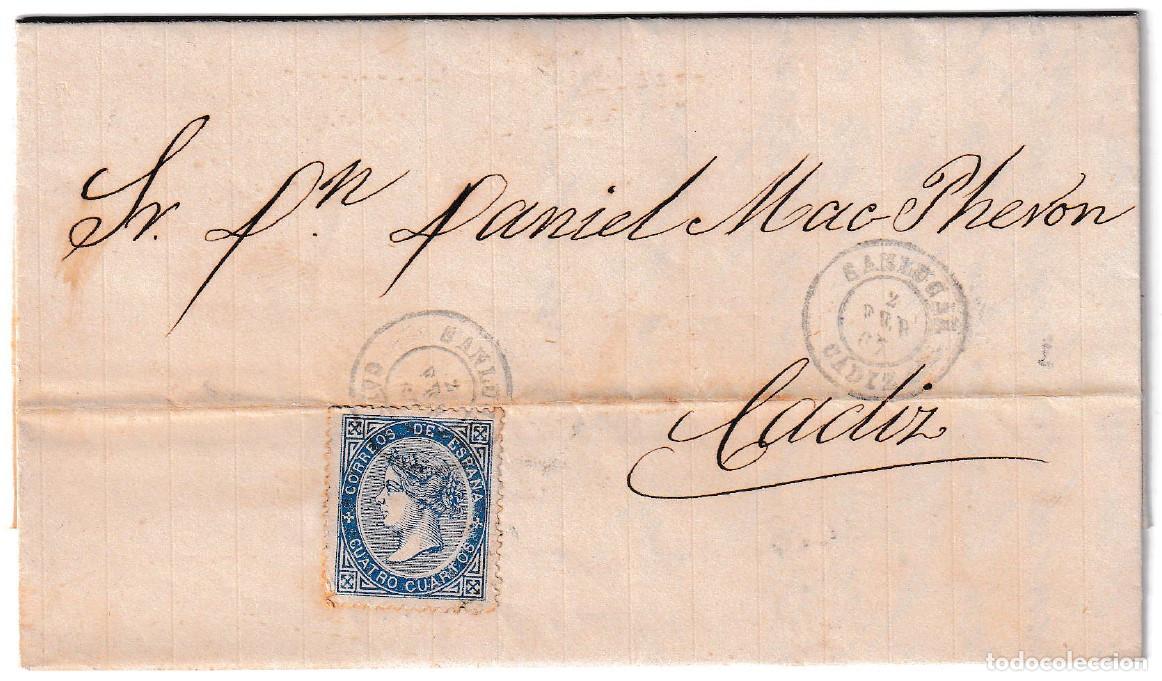 Sr. Dn. Daniel Mac-Pherón
SANLUCAR
2
FEB
67
CADIZ
Cadiz
SANLU
2
CORREOS DE ESPAÑA
CUATRO CUARTOS
todocoleccion